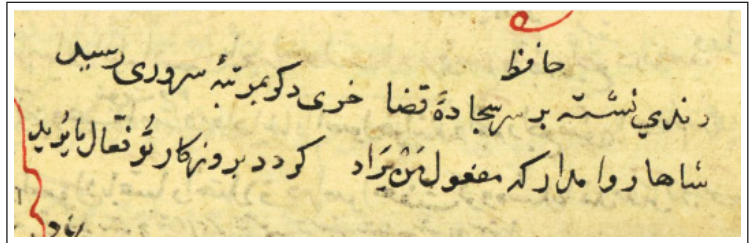 حافظ
رندي نشسته بر سر سجادهٔ قضا خری دکر بمرتبهٔ سروری رسید
شاها روا مدار که مفعول مَنْ یَراد کردد بروزکار تُو فعّال ما یُرید